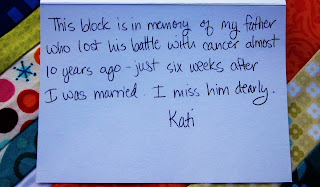 This block is in memory of my father
who lost his battle with cancer almost
10 years ago - just six weeks after
I was married. I miss him dearly.
Kati